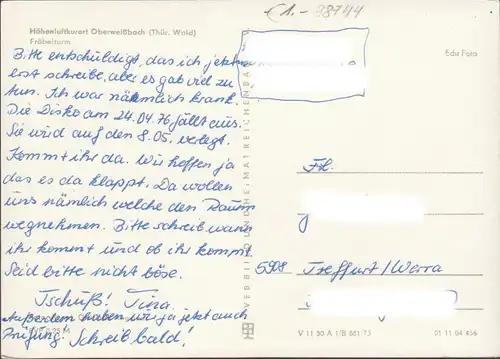 €1.- 98744
Höhenluftkurort Oberweißbach (Thür. Wald)
Fröbelturm
Echt Foto
Bitte entschüldigt, das ich jetzt
erst schreibe, aber es gab viel zu
tun. Ich war nähmlich krank.
Die Disko am 24.04.76 fällt aus.
Sie wird auf den 8.05. verlegt.
Kommt ihr da. Wir hoffen ja
das es da klappt. Da wollen
uns nämlich welche den Raum
wegnehmen. Bitte schreib wann
ihr kommt und ob ihr kommt.
Seid bitte nicht böse.
Tschüß! Tina.
Außerdem haben wir ja jetzt auch
Prüfung! Schreib bald!
VEB BILD UND HEIMAT REICHENBACH
Frl.
5908 Treffurt/Werra
V 11 50 A 1/B 881/75
01 11 04 456